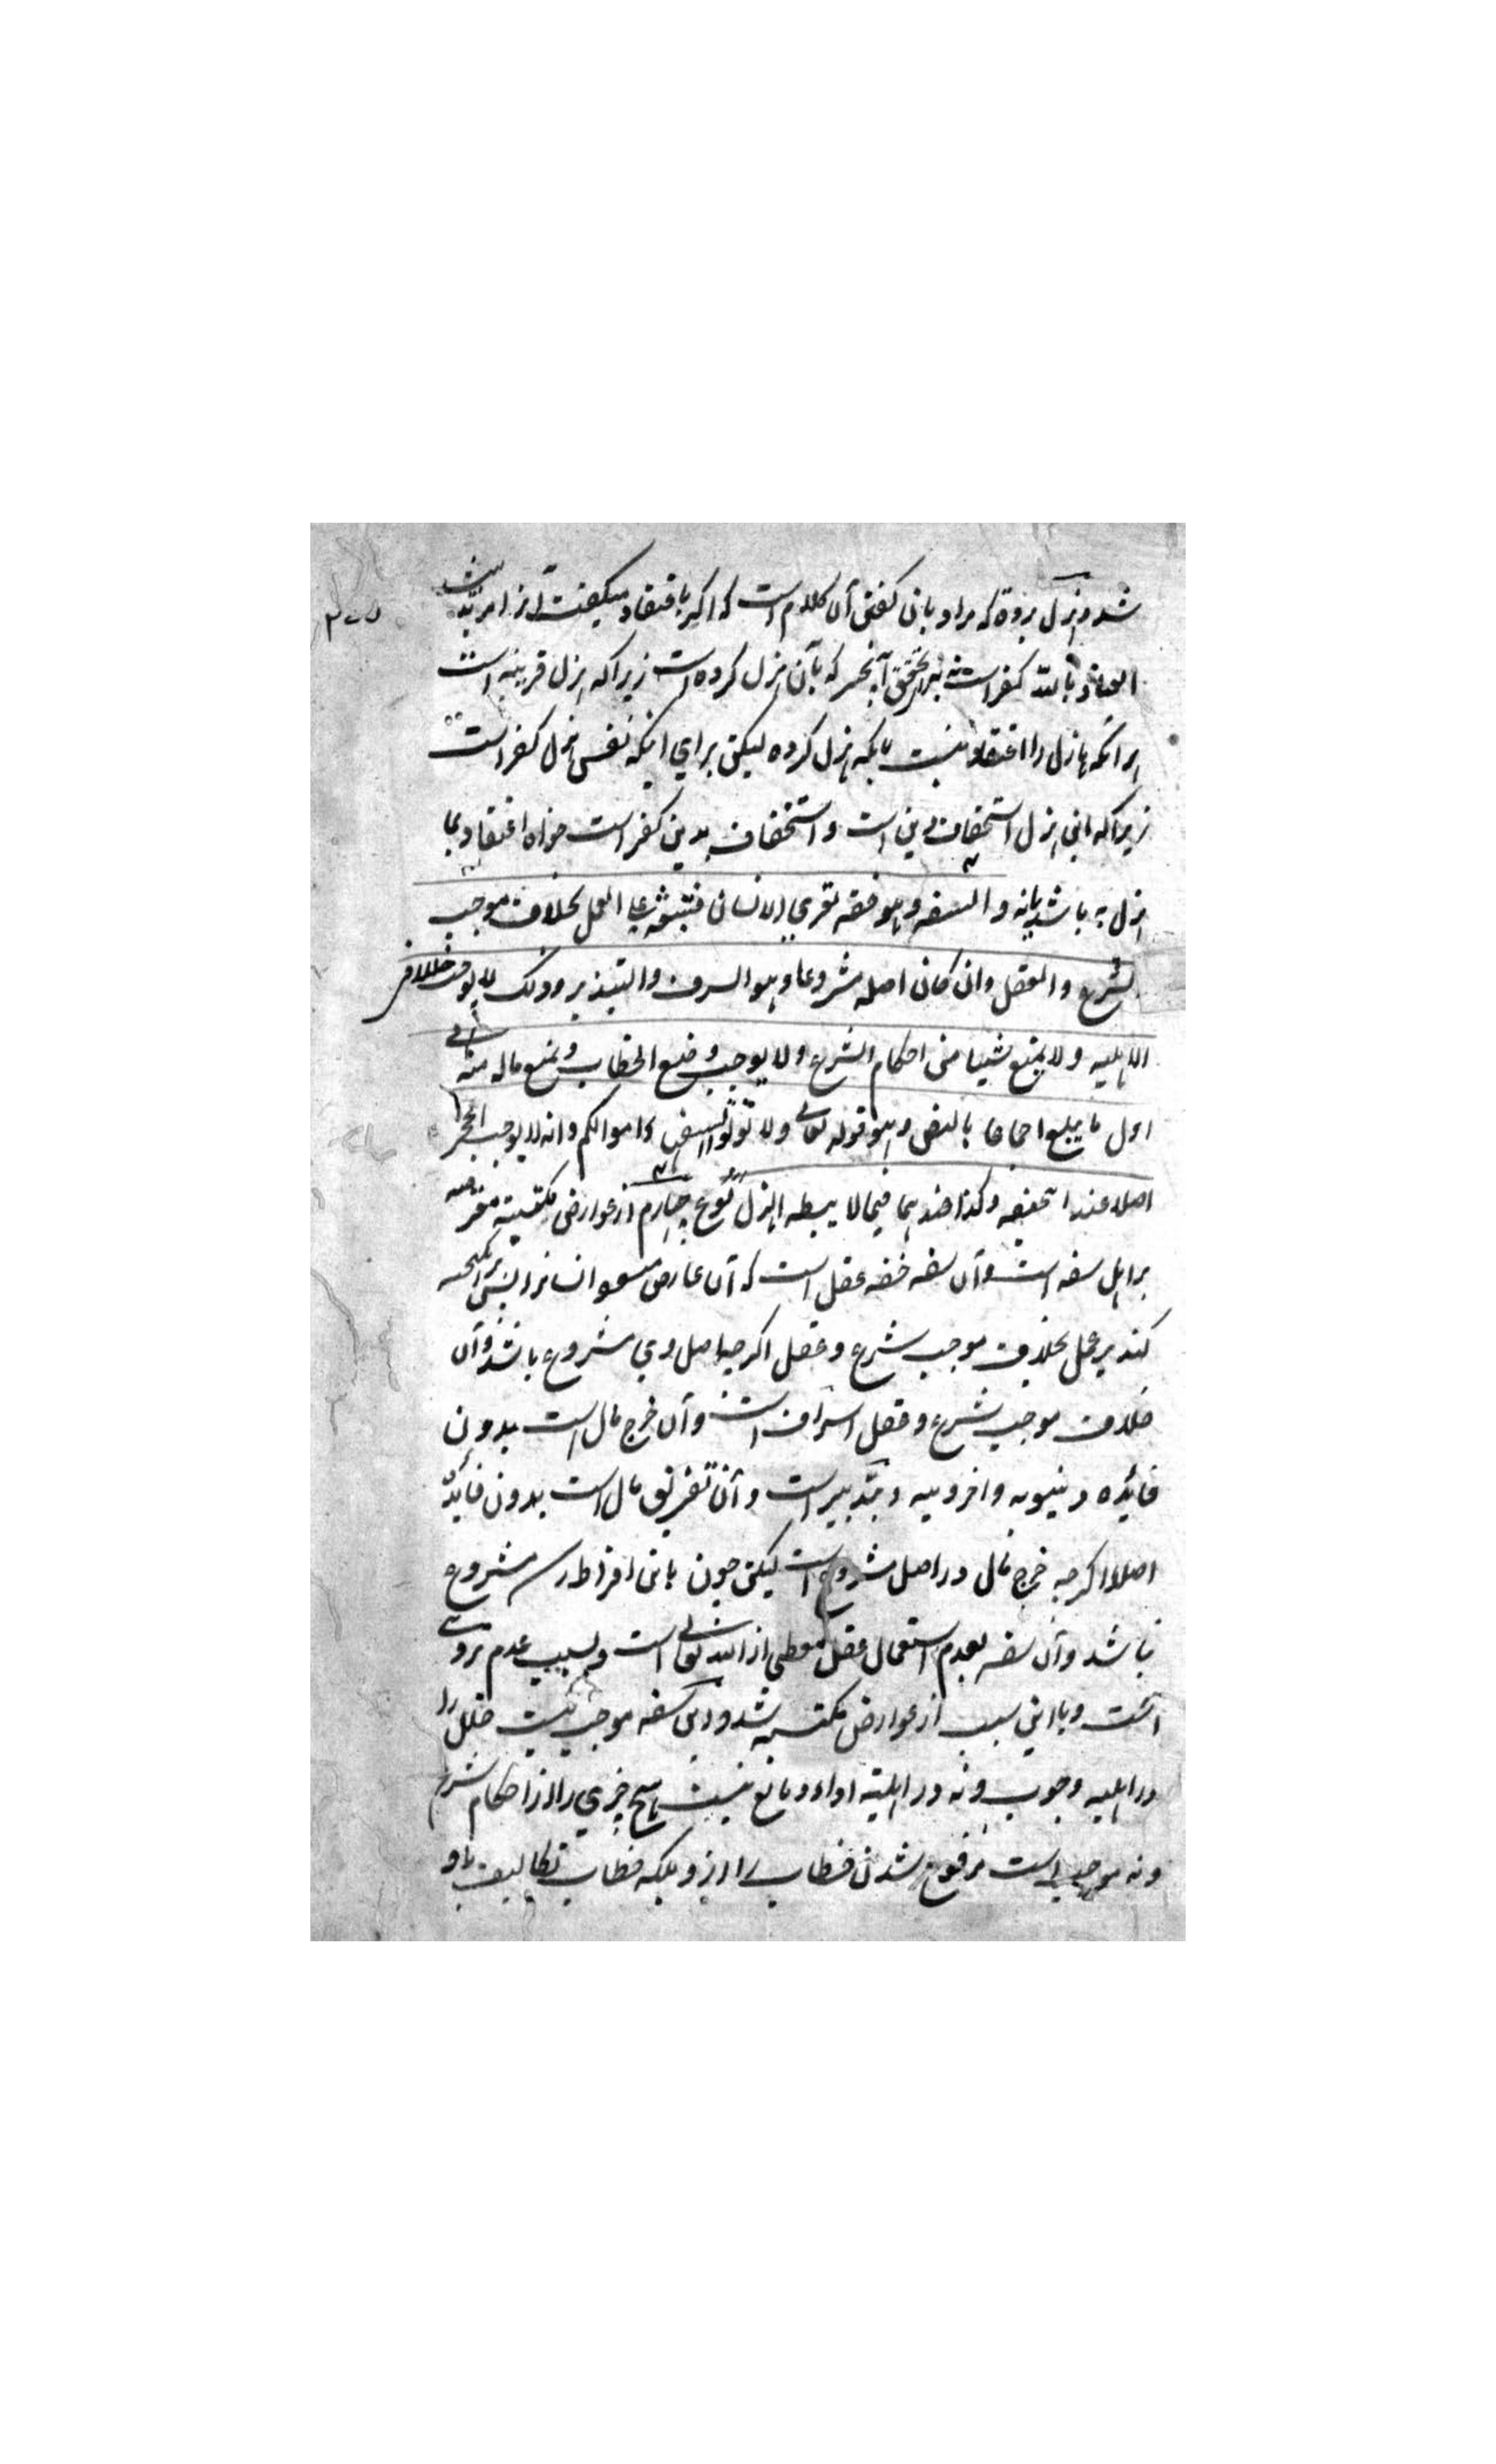 شد و هزل بردة که مراد بان گفتن آن کلام است که اگر باعتقاد میگفت ازا مرتد میشد
العیاذ بالله کفر است نه برای تحقق آنچیز که بآن هزل کرده است زیراکه هزل قرینه است
برانکه هازل را اعتقاد نیست بانکه هزل کرده لیکن برای اینکه نفس هزل کفر است
زیراکه این هزل استخفاف دین است و استخفاف بدین کفر است خواه اعتقاد بما
هزل به باشد یا نه والسفه وهو خفة تعتری الانسان فتبعثه علی العمل بخلاف موجب
الشرع والعقل وان کان اصله مشروعا وهو السرف والتبذیر وذلک لا یوجب خللا فی
الاهلیه ولا یمنع شیئا من احکام الشرع ولا یوجب وضع الخطاب ویمنع ماله منه فی
اول ما یبلغ اجماعا بالنص وهو قوله تعالی ولا تؤتوا السفهاء اموالکم وانه لا یوجب الحجر
اصلا عند ابیحنیفه وکذا عندهما فیما لا یبطله الهزل نوع چهارم از عوارض مکتسبة
بر اهل سفه است و آن سفه خفه عقل است که آن عارض میشود انسانرا پس برانگیخته
کند بر عمل بخلاف موجب شرع و عقل اگرچه اصل وی مشروع باشد و آن
خلاف موجب شرع و عقل اسراف است و آن خرج مال است بدون
فائده دنیویه و اخرویه و تبذیر است و آن تفریق مال است بدون فائده
اصلا اگرچه خرج مال در اصل مشروع است لیکن چون باین افراط رسد مشروع
نباشد و آن سفه بعدم استعمال عقل معطی از الله تعالی است و بسبب عدم تروی
است و باین سبب از عوارض مکتسبه شد و این سفه موجب نیست خلل را
در اهلیه وجوب و نه در اهلیته اداء و مانع نیست هیچ چیزی را از احکام شرع
و نه موجب است مرفوع شدن خطاب را ازو بلکه خطاب تکالیف باو